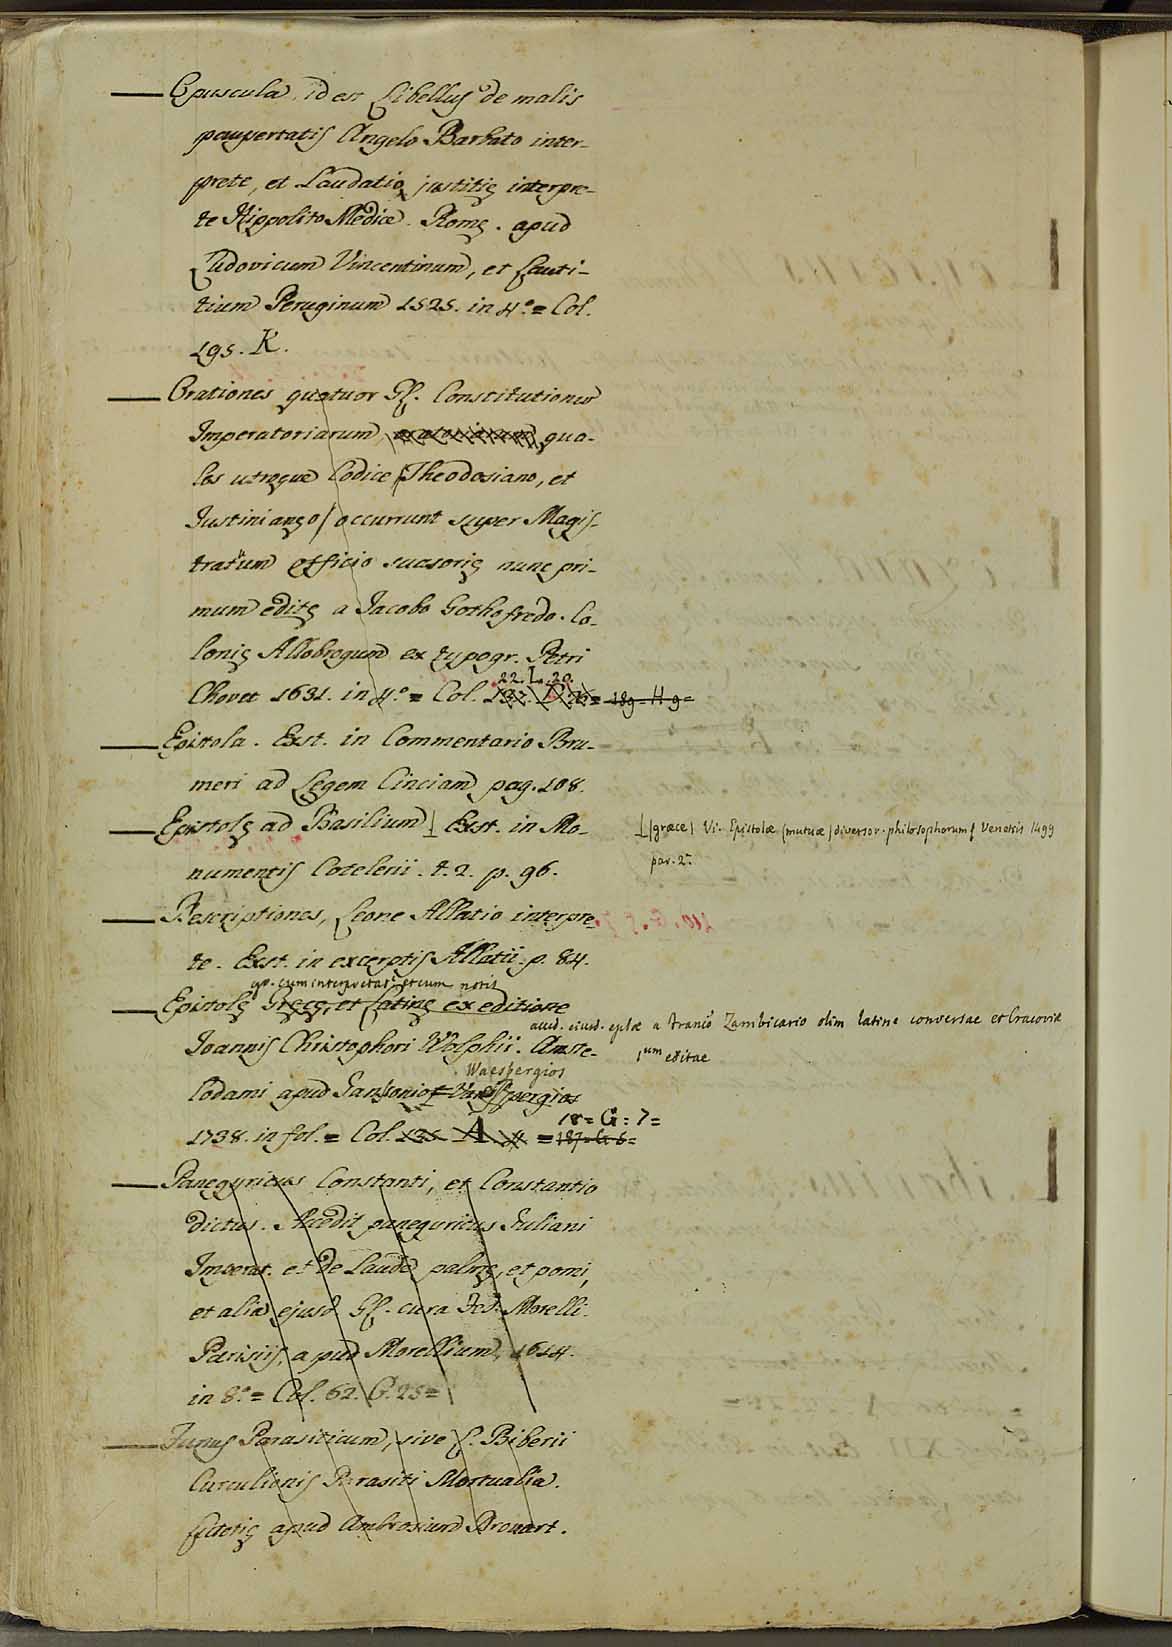 — Opuscula id est Libellus de malis
paupertatis Angelo Barbato inter-
prete, et Laudatio justitię interpre-
te Hippolito Medice. Romę. apud
Ludovicum Vincentinum, et Lauti-
tium Peruginum 1525. in 4.º = Col.
195. K.
— Orationes quatuor SS. Constitutionum
Imperatoriarum, qua-
les utroque Codice (Theodosiano, et
Justinianęo) occurrunt super Magis-
tratuum officio suasorię nunc pri-
mum editę a Jacobo Gothofredo. Co-
lonię Allobrogum ex typogr. Petri
22. L. 20.
Chovet 1631. in 4.º = Col. 189 - H 9 =
— Epistola. Exst. in Commentario Bru-
meri ad Legem Cinciam pag. 108.
— Epistolę ad Basilium ⊥ Exst. in Mo-
numentis Cotelerii. t. 2. p. 96.
⊥ (græce) Vi. Epistolæ (mutuæ) diversor. philosophorum Venetiis 1499
par. 2.ª
— Descriptiones, Leone Allatio interpre-
te. Exst. in excerptis Allatii. p. 84.
gr. cum interpretat.e et cum notis
— Epistolę Gręcę, et Latinę ex editione
Joannis Christophori Wolphii. Amste-
acced. eiusd. eplæ a Franc.º Zambicario olim latine conversae et Cracoviæ
1um editae
Waespergios
lodami apud Jansonios
18 = G : 7 =
1738. in fol. = Col. 135 A 4 = 187 = G 6 =
— Panegyricus Constanti, et Constantio
dictus. Accedit panegyricus Juliani
Imperat. et de Laude palmę, et pomi,
et alia ejusd. SS. cura Fed. Morelli.
Parisiis, apud Morellium, 1614.
in 8.º = Col. 62. G. 25 =
— Funus Parasiticum, sive L. Biberii
Curculionis Parasiti Mortualia.
apud Ambrosium Drouart.